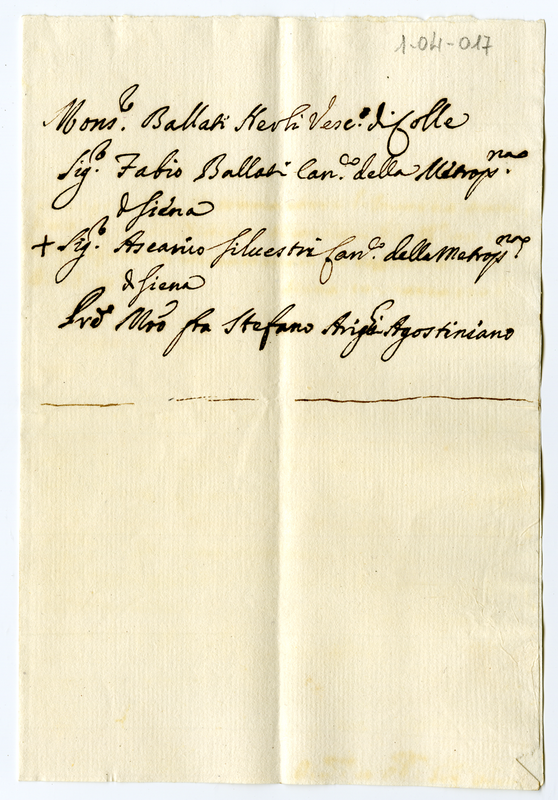 1-04-017
Mons.r Ballati Nerli Vesc.o di Colle
Sig.r Fabio Ballati Can.co della Metrop.na
di Siena
+ Sig.r Ascanio Silvestri Can.co della Metrop.na
di Siena
Prd Mro fra Stefano Arighi Agostiniano